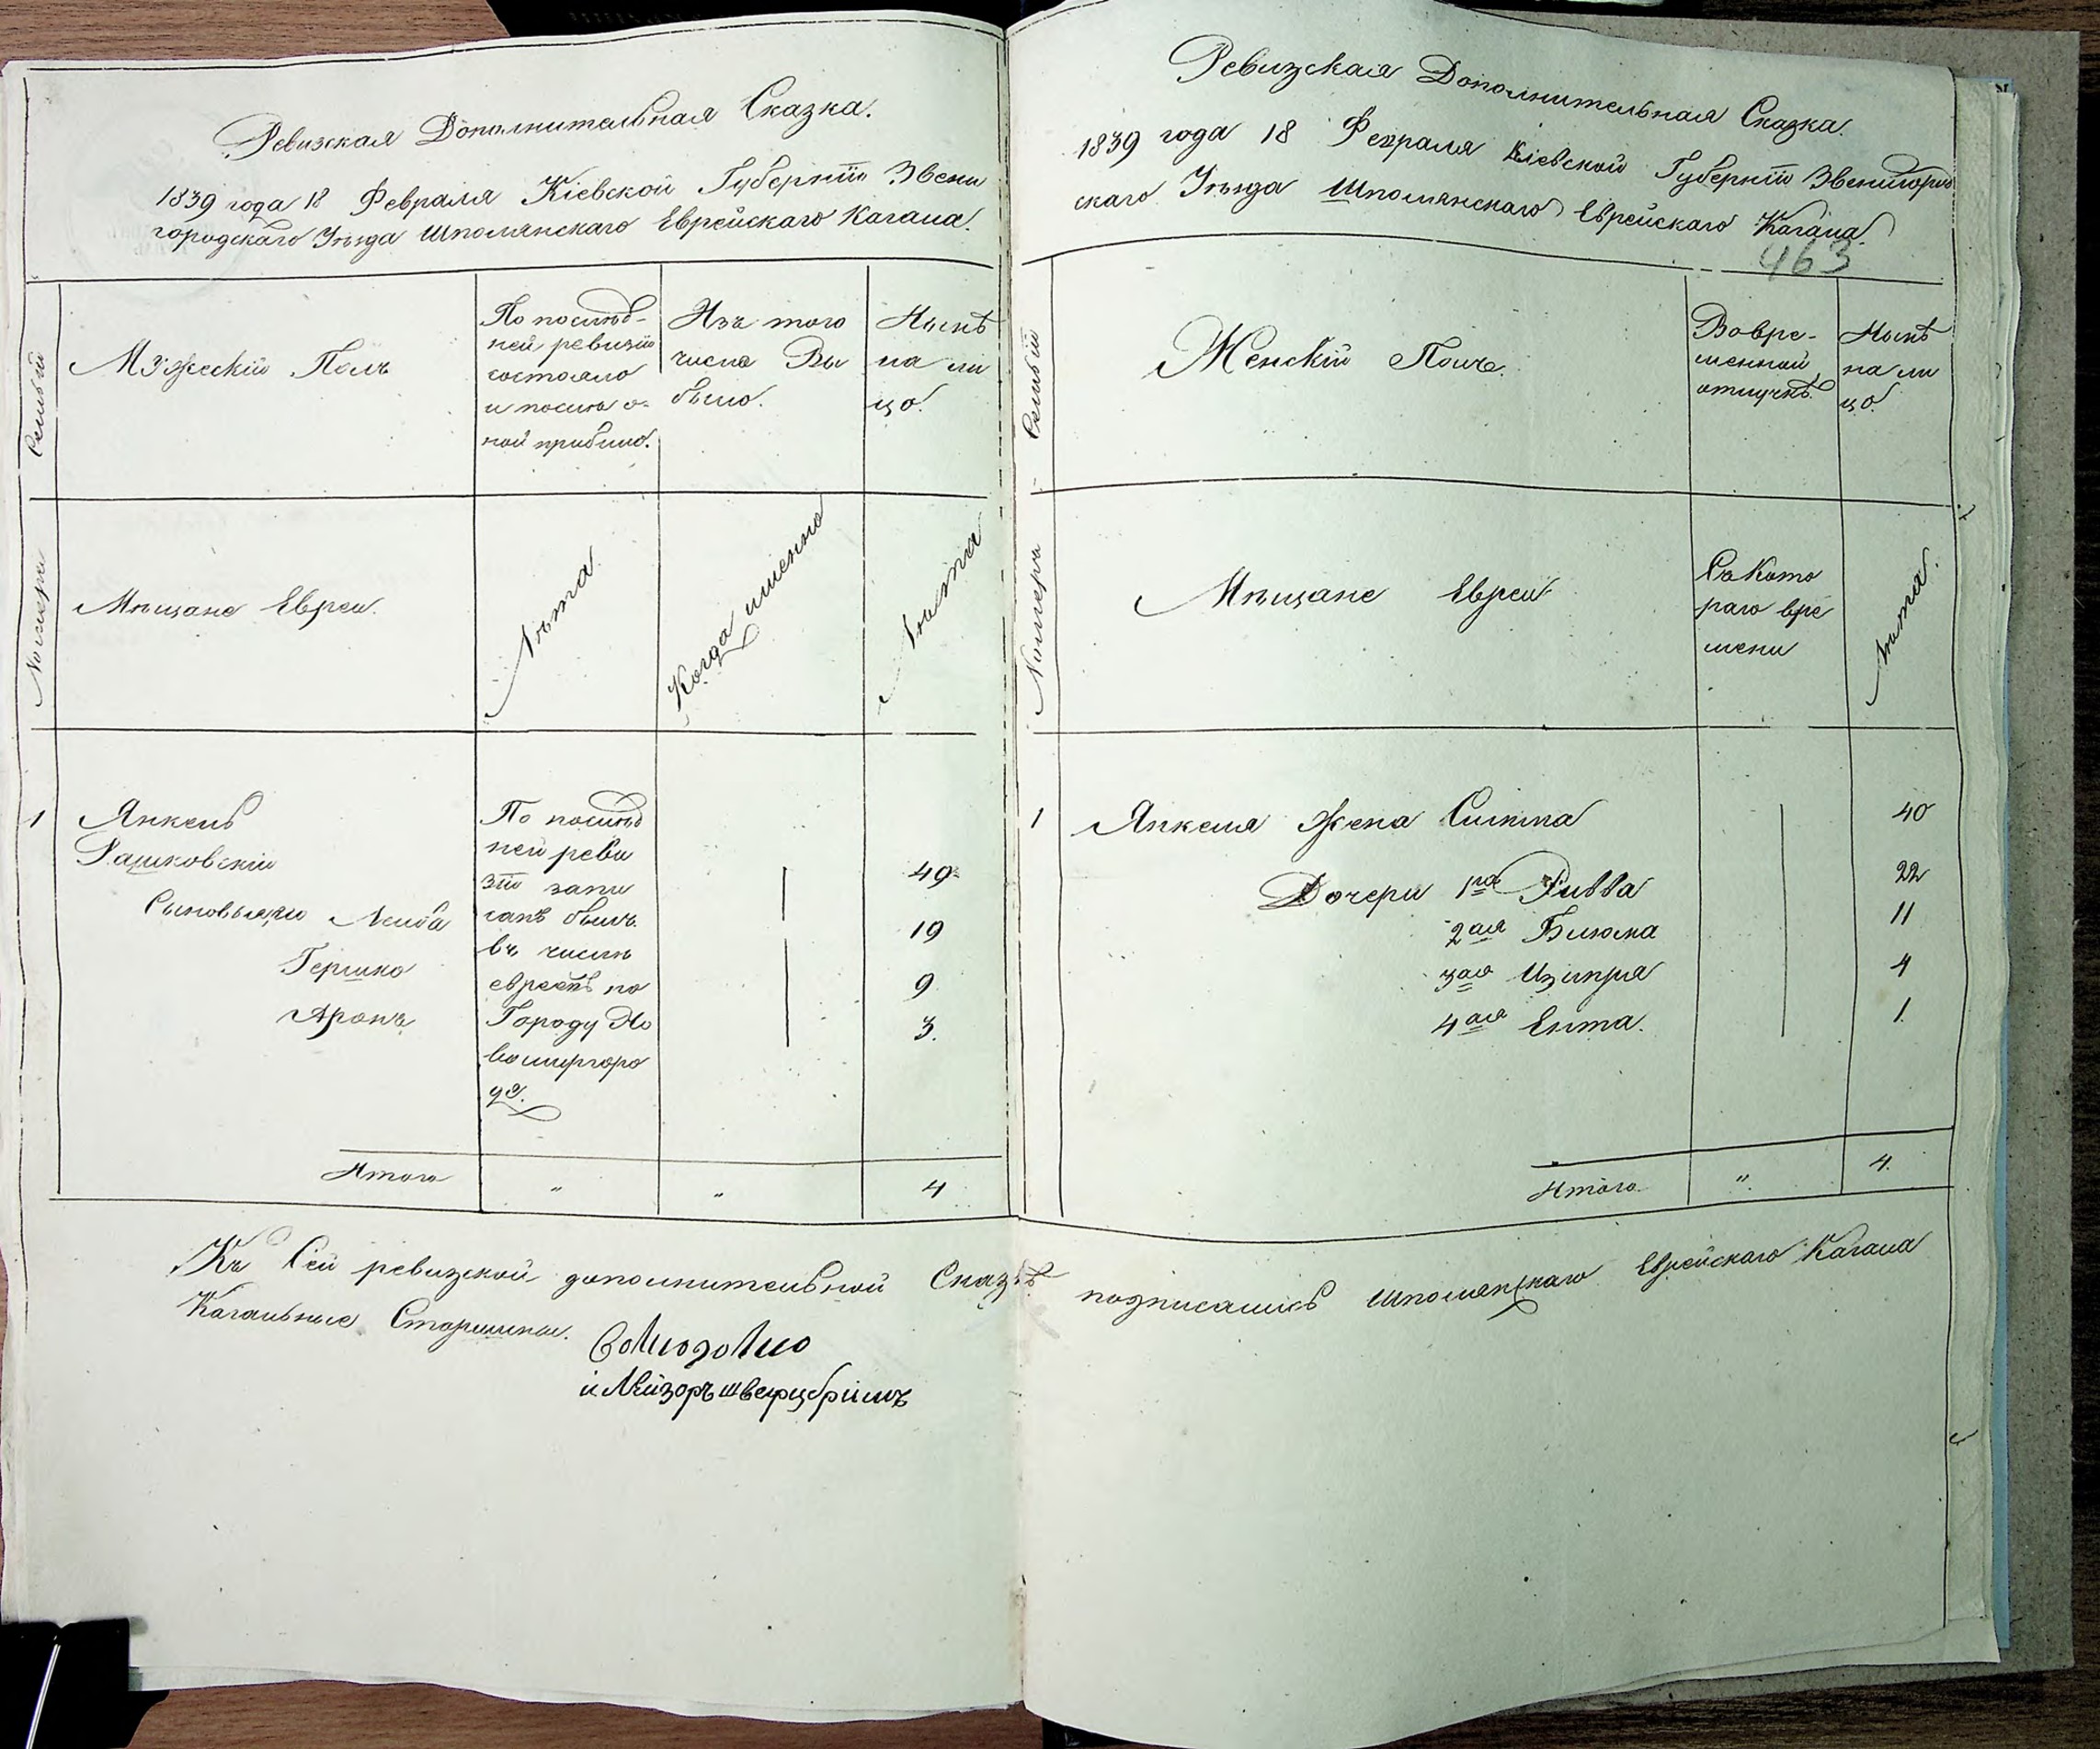 Ревизская Дополнительная Сказка.
1839 года 18 Февраля Кіевской Губерніи Звени
городскаго Уѣзда Шполянскаго Еврейскаго Кагала.
Нумера Семьй
Мужескій Полъ
По послѣд-
ней ревизіи
состояло
и послѣ о-
ной прибыло.
Изъ того
числа Вы
было.
Нынѣ
на ли
цо.
Мѣщане Евреи.
Лѣта
Когда именно
Лѣта
1 Янкель
Рашковскій
Сыновья его Лейба
Гершко
Аронъ
По послѣд
ней реви
зіи запи
санъ былъ
въ числѣ
евреевъ по
Городу Но
вомиргоро
ду.
49
19
9
3.
Итого " " 4
Ревизская Дополнительная Сказка.
1839 года 18 Февраля Кіевской Губерніи Звенигород
скаго Уѣзда Шполянскаго Еврейскаго Кагала.
463
Нумера Семьй
Женскій Полъ.
Вовре-
менной
отлучкѣ.
Нынѣ
на ли
цо.
Мѣщане Евреи
Съ кото
раго вре
мени
Лѣта.
1 Янкеля Жена Симма 40
Дочери 1я Ривва 22
2ая Блюма 11
3ая Ципря 4
4ая Ента. 1.
Итого " 4.
Къ Сей ревизской дополнительной Сказкѣ подписались Шполянскаго Еврейскаго Кагала
Кагальные Старшины.